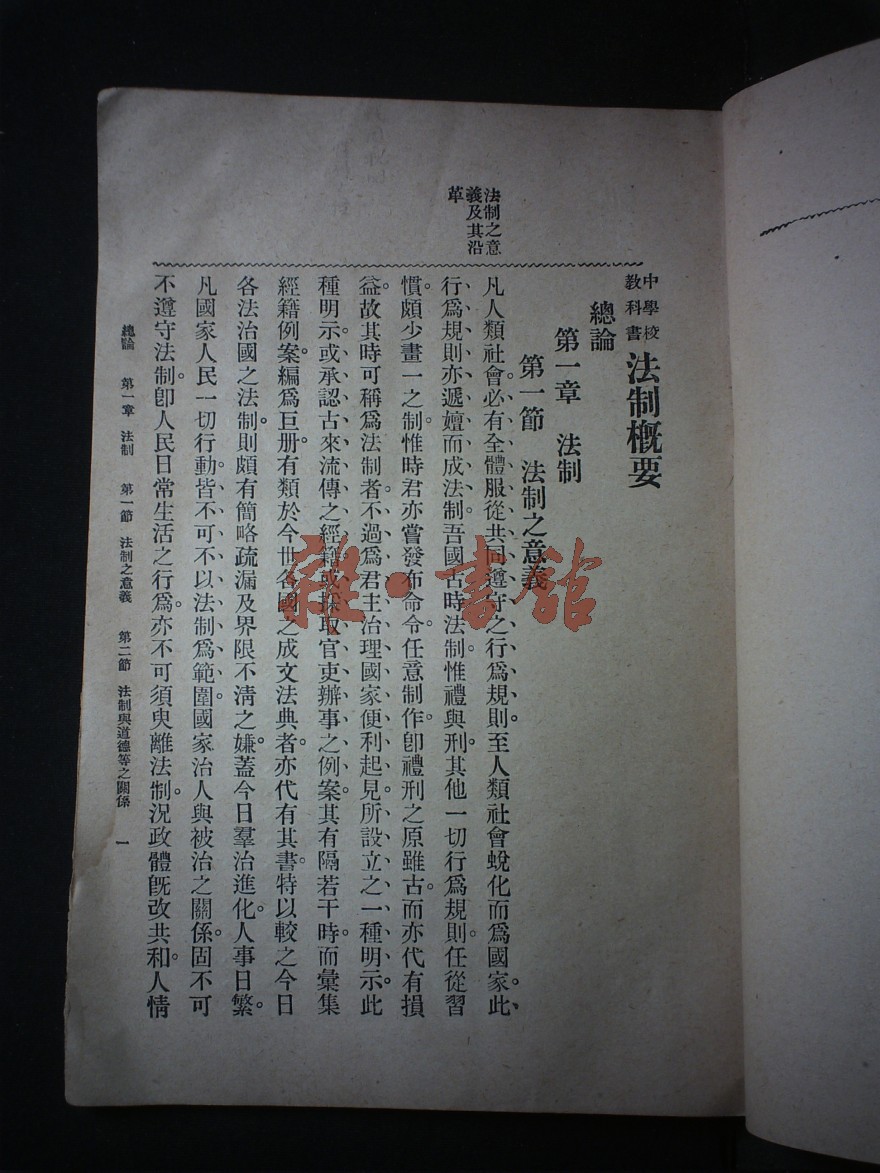 中學校教科書 法制概要
總論
第一章 法制
第一節 法制之意義
法制之意
義及其沿
革
凡人類社會必有全體服從共同遵守之行爲規則。至人類社會蛻化而爲國家。此
行爲規則亦遞嬗而成法制。吾國古時法制。惟禮與刑。其他一切行爲規則。任從習
慣。頗少畫一之制。惟時君亦嘗發布命令。任意制作。卽禮刑之原雖古。而亦代有損
益。故其時可稱爲法制者。不過爲君主治理國家便利起見所設立之一種明示。此
種明示。或承認古來流傳之經籍。或採取官吏辦事之例案。其有隔若干時。而彙集
經籍例案。編爲巨册。有類於今世各國之成文法典者。亦代有其書。特以較之今日
各法治國之法制。則頗有簡略疏漏及界限不淸之嫌。蓋今日羣治進化。人事日繁。
凡國家人民一切行動。皆不可不以法制爲範圍。國家治人與被治之關係。固不可
不遵守法制。卽人民日常生活之行爲。亦不可須臾離法制。況政體旣改共和。人情
總論 第一章 法制 第一節 法制之意義 第二節 法制與道德等之關係 一
雜·書館